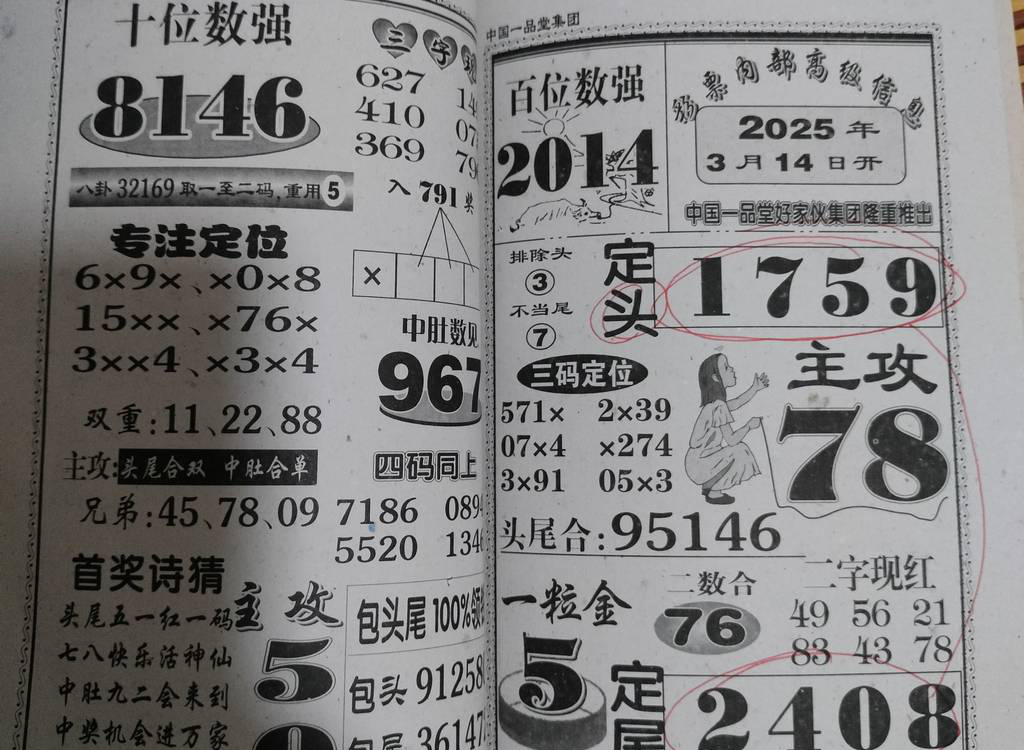 十位数强
8146
八卦32169取一至二码,重用5
专注定位
6×9×、×0×8
15××、×76×
3××4、×3×4
双重:11、22、88
主攻:头尾合双 中肚合单
兄弟:45、78、09
首奖诗猜
头尾五一红一码
七八快乐活神仙
中肚九二会来到
中奖机会进万家
主攻
5
三字现
627
410
369
入791奖
×
中肚数见
967
四码同上
7186
5520
包头尾100%
包头91258
包尾36147
中国一品堂集团
百位数强
2014
彩票内部高级信息
2025年
3月14日开
中国一品堂好家伙集团隆重推出
排除头
3
不当尾
7
定头
1759
三码定位
571× 2×39
07×4 ×274
3×91 05×3
主攻
78
头尾合:95146
一粒金
5
二数合
76
二字现红
49 56 21
83 43 78
定尾
2408